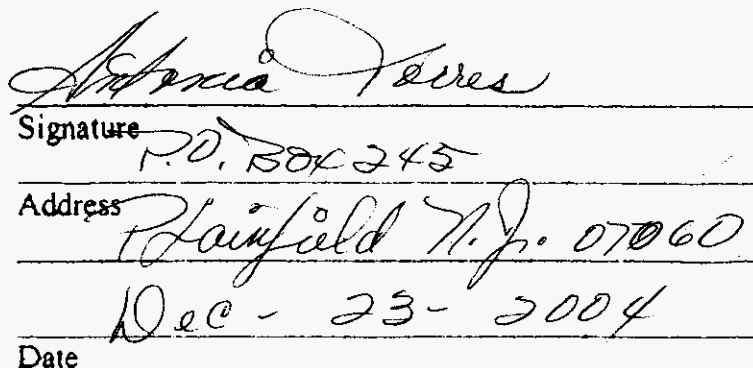 Antonia Torres
Signature
P.O. Box 245
Address
Plainfield N.J. 07060
Dec - 23 - 2004
Date